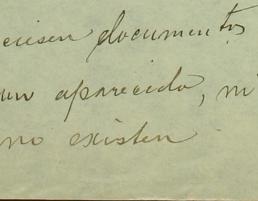 documentos
aparecido, ni
no existen